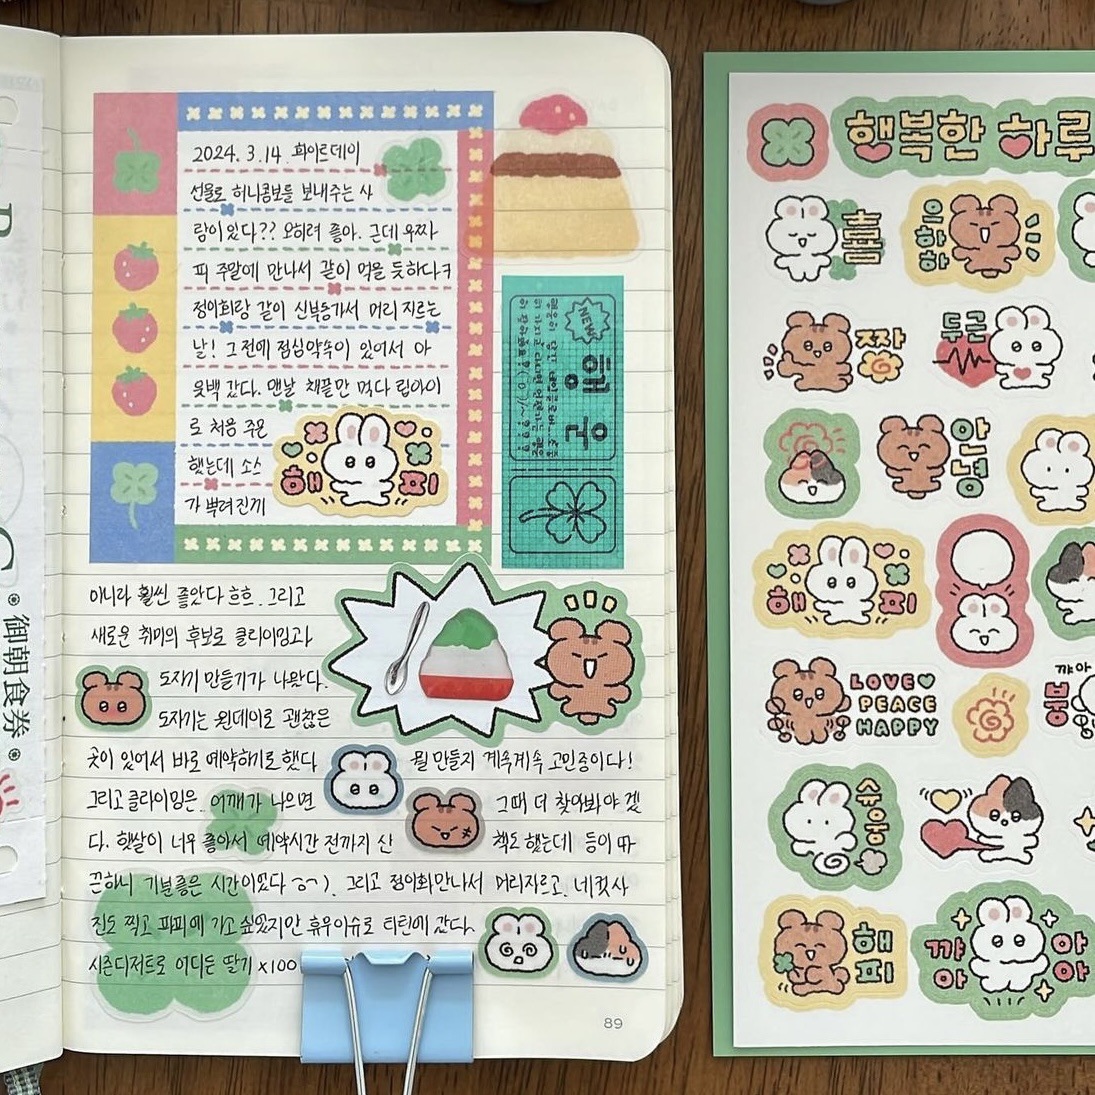 2024. 3. 14. 화이트데이
선물로 허니콤보를 보내주는 사
람이 있다?? 오히려 좋아. 근데 우짜
피 주말에 만나서 같이 먹을 듯하다ㅋ
정이희랑 같이 신부동가서 머리 자르는
날! 그전에 점심약속이 있어서 아
웃백 갔다. 맨날 채끝만 먹다 립아이
로 처음 주문
했는데 소스
가 뿌려진게
해피
아니라 훨씬 좋았다 흐흐. 그리고
새로운 취미의 후보로 클라이밍과
도자기 만들기가 나왔다.
도자기는 원데이로 괜찮은
곳이 있어서 바로 예약하기로 했다 뭘 만들지 계속계속 고민중이다!
그리고 클라이밍은 어깨가 나으면 그때 더 찾아봐야겠
다. 햇살이 너무 좋아서 예약시간 전까지 산책도 했는데 등이 따
끈하니 기분좋은 시간이었다 그리고 정이희만나서 머리자르고, 네컷사
진도 찍고 파피에 가고 싶었지만 휴무이슈로 티탄에 갔다.
시즌디저트로 어디든 딸기 x100
89
NEW
행운
御朝食券
행복한 하루
喜
으하하
짜자
두근
안녕
해피
LOVE
PEACE
HAPPY
꺄아
붕
슈웅
해피
꺄아 아아